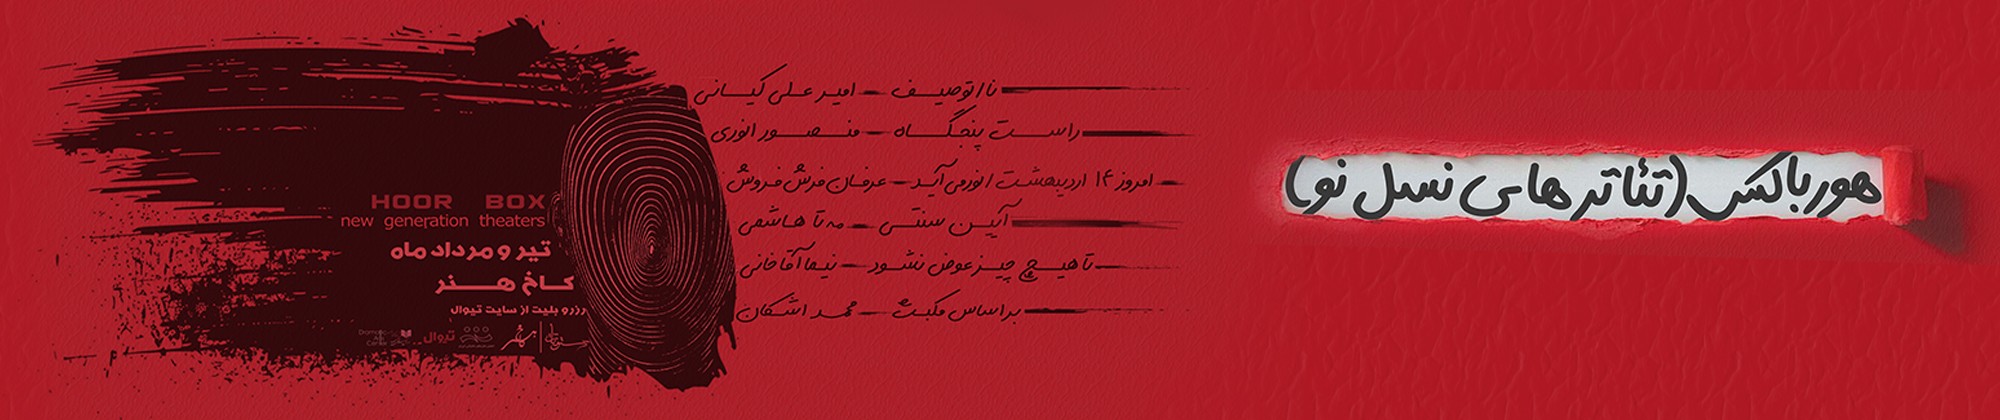 هورباکس (تئاترهای نسل نو)
نااتوصیف — امیرعلی کیسانی
راست پنجگاه — منصور انوری
امروز ۱۴ اردیبهشت / نورمی آید — عرفان فرش فروش
آیین سنتی — مه تا هاشمی
تا هیچ چیز عوض نشود — نیما آقاخانی
براساس مکبث — محمد اشکان
HOOR BOX
new generation theaters
تیر و مرداد ماه
کاخ هنر
رزرو بلیت از سایت تیوال
تیوال